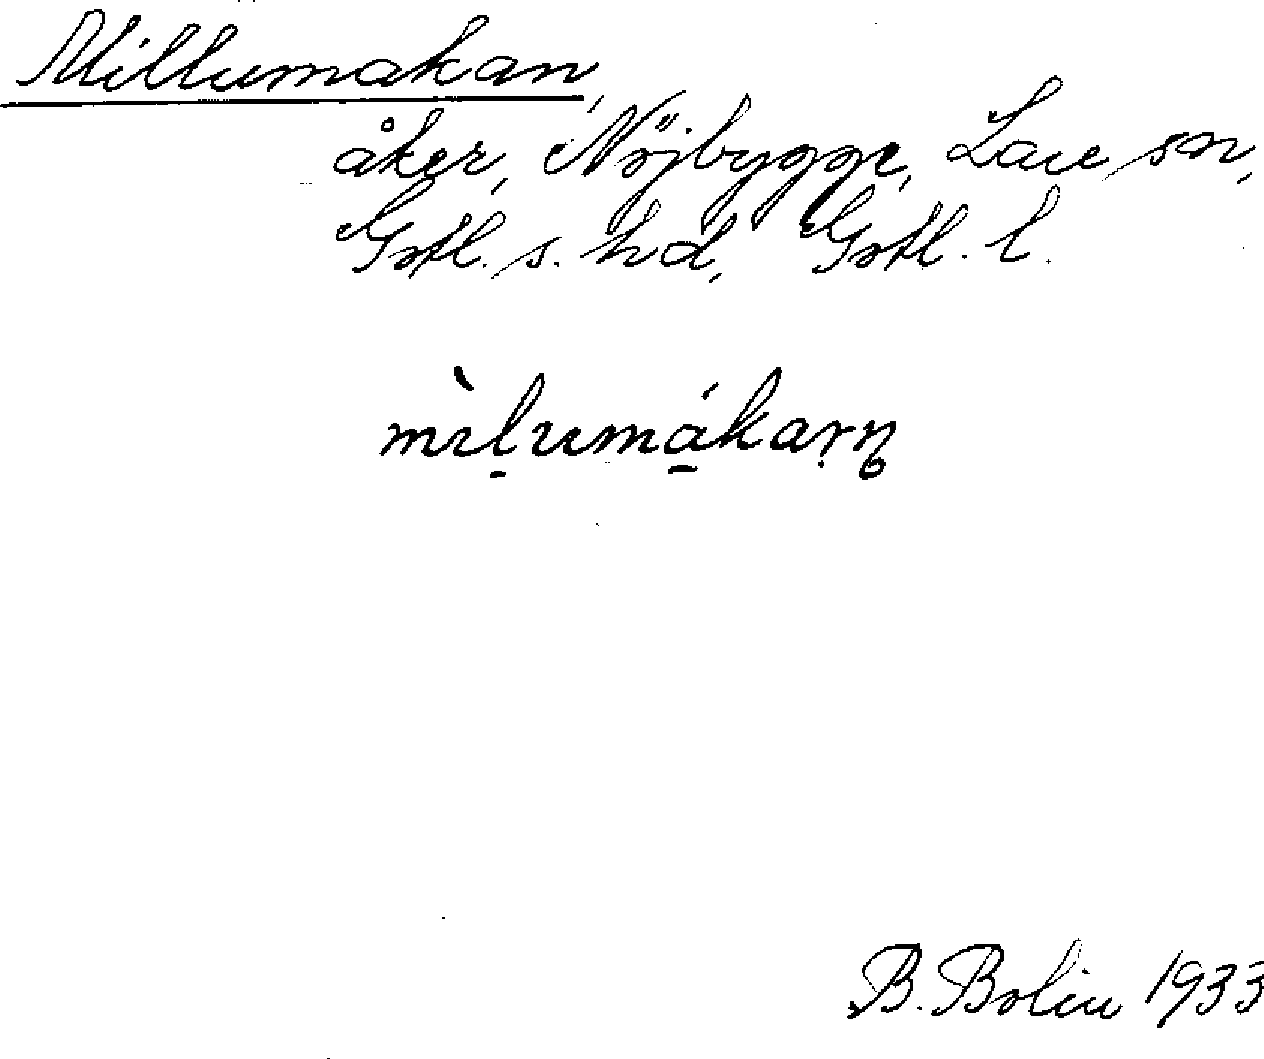 Millumakan,
åker, Nöjbygge, Lau sn,
Gotl. s. hd, Gotl. l.
mìḷumákaṛn̥
B. Bolin 1933